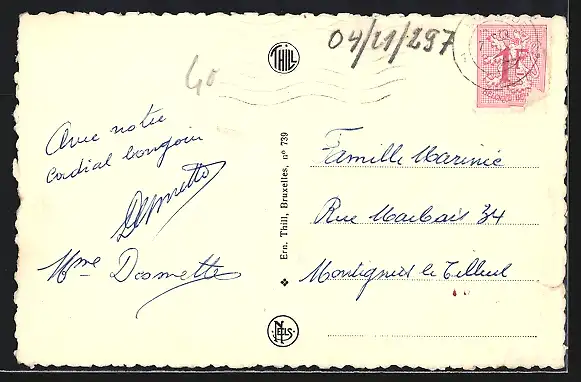 40
04/21/297
THILL
1F
Avec notre
cordial bonjour
Desmette
Mme Desmette
Ern. Thill, Bruxelles, n° 739
NELS
Famille Marinic
Rue Marbais 34
Montignies le Tilleul